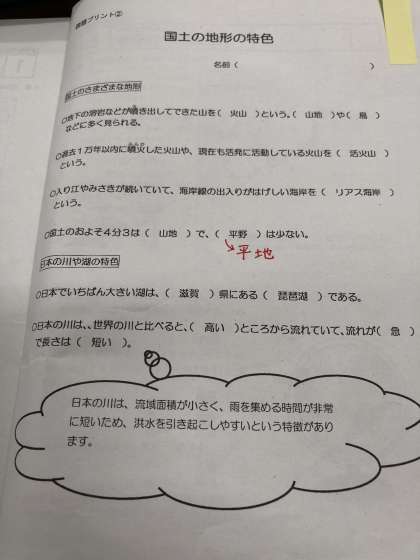 習プリント②
国土の地形の特色
名前（　　　　　　　　　　　　）
国土のさまざまな地形
○地下の溶岩などが噴き出してできた山を（　火山　）という。（　山地　）や（　島　）
などに多く見られる。
○過去１万年以内に噴火した火山や、現在も活発に活動している火山を（　活火山　）
という。
○入り江やみさきが続いていて、海岸線の出入りがはげしい海岸を（　リアス海岸　）
という。
○国土のおよそ４分３は（　山地　）で、（　平野　）は少ない。
平地
日本の川や湖の特色
○日本でいちばん大きい湖は、（　滋賀　）県にある（　琵琶湖　）である。
○日本の川は、、世界の川と比べると、（　高い　）ところから流れていて、流れが（　急　）
で長さは（　短い　）。
日本の川は、流域面積が小さく、雨を集める時間が非常
に短いため、洪水を引き起こしやすいという特徴があり
ます。